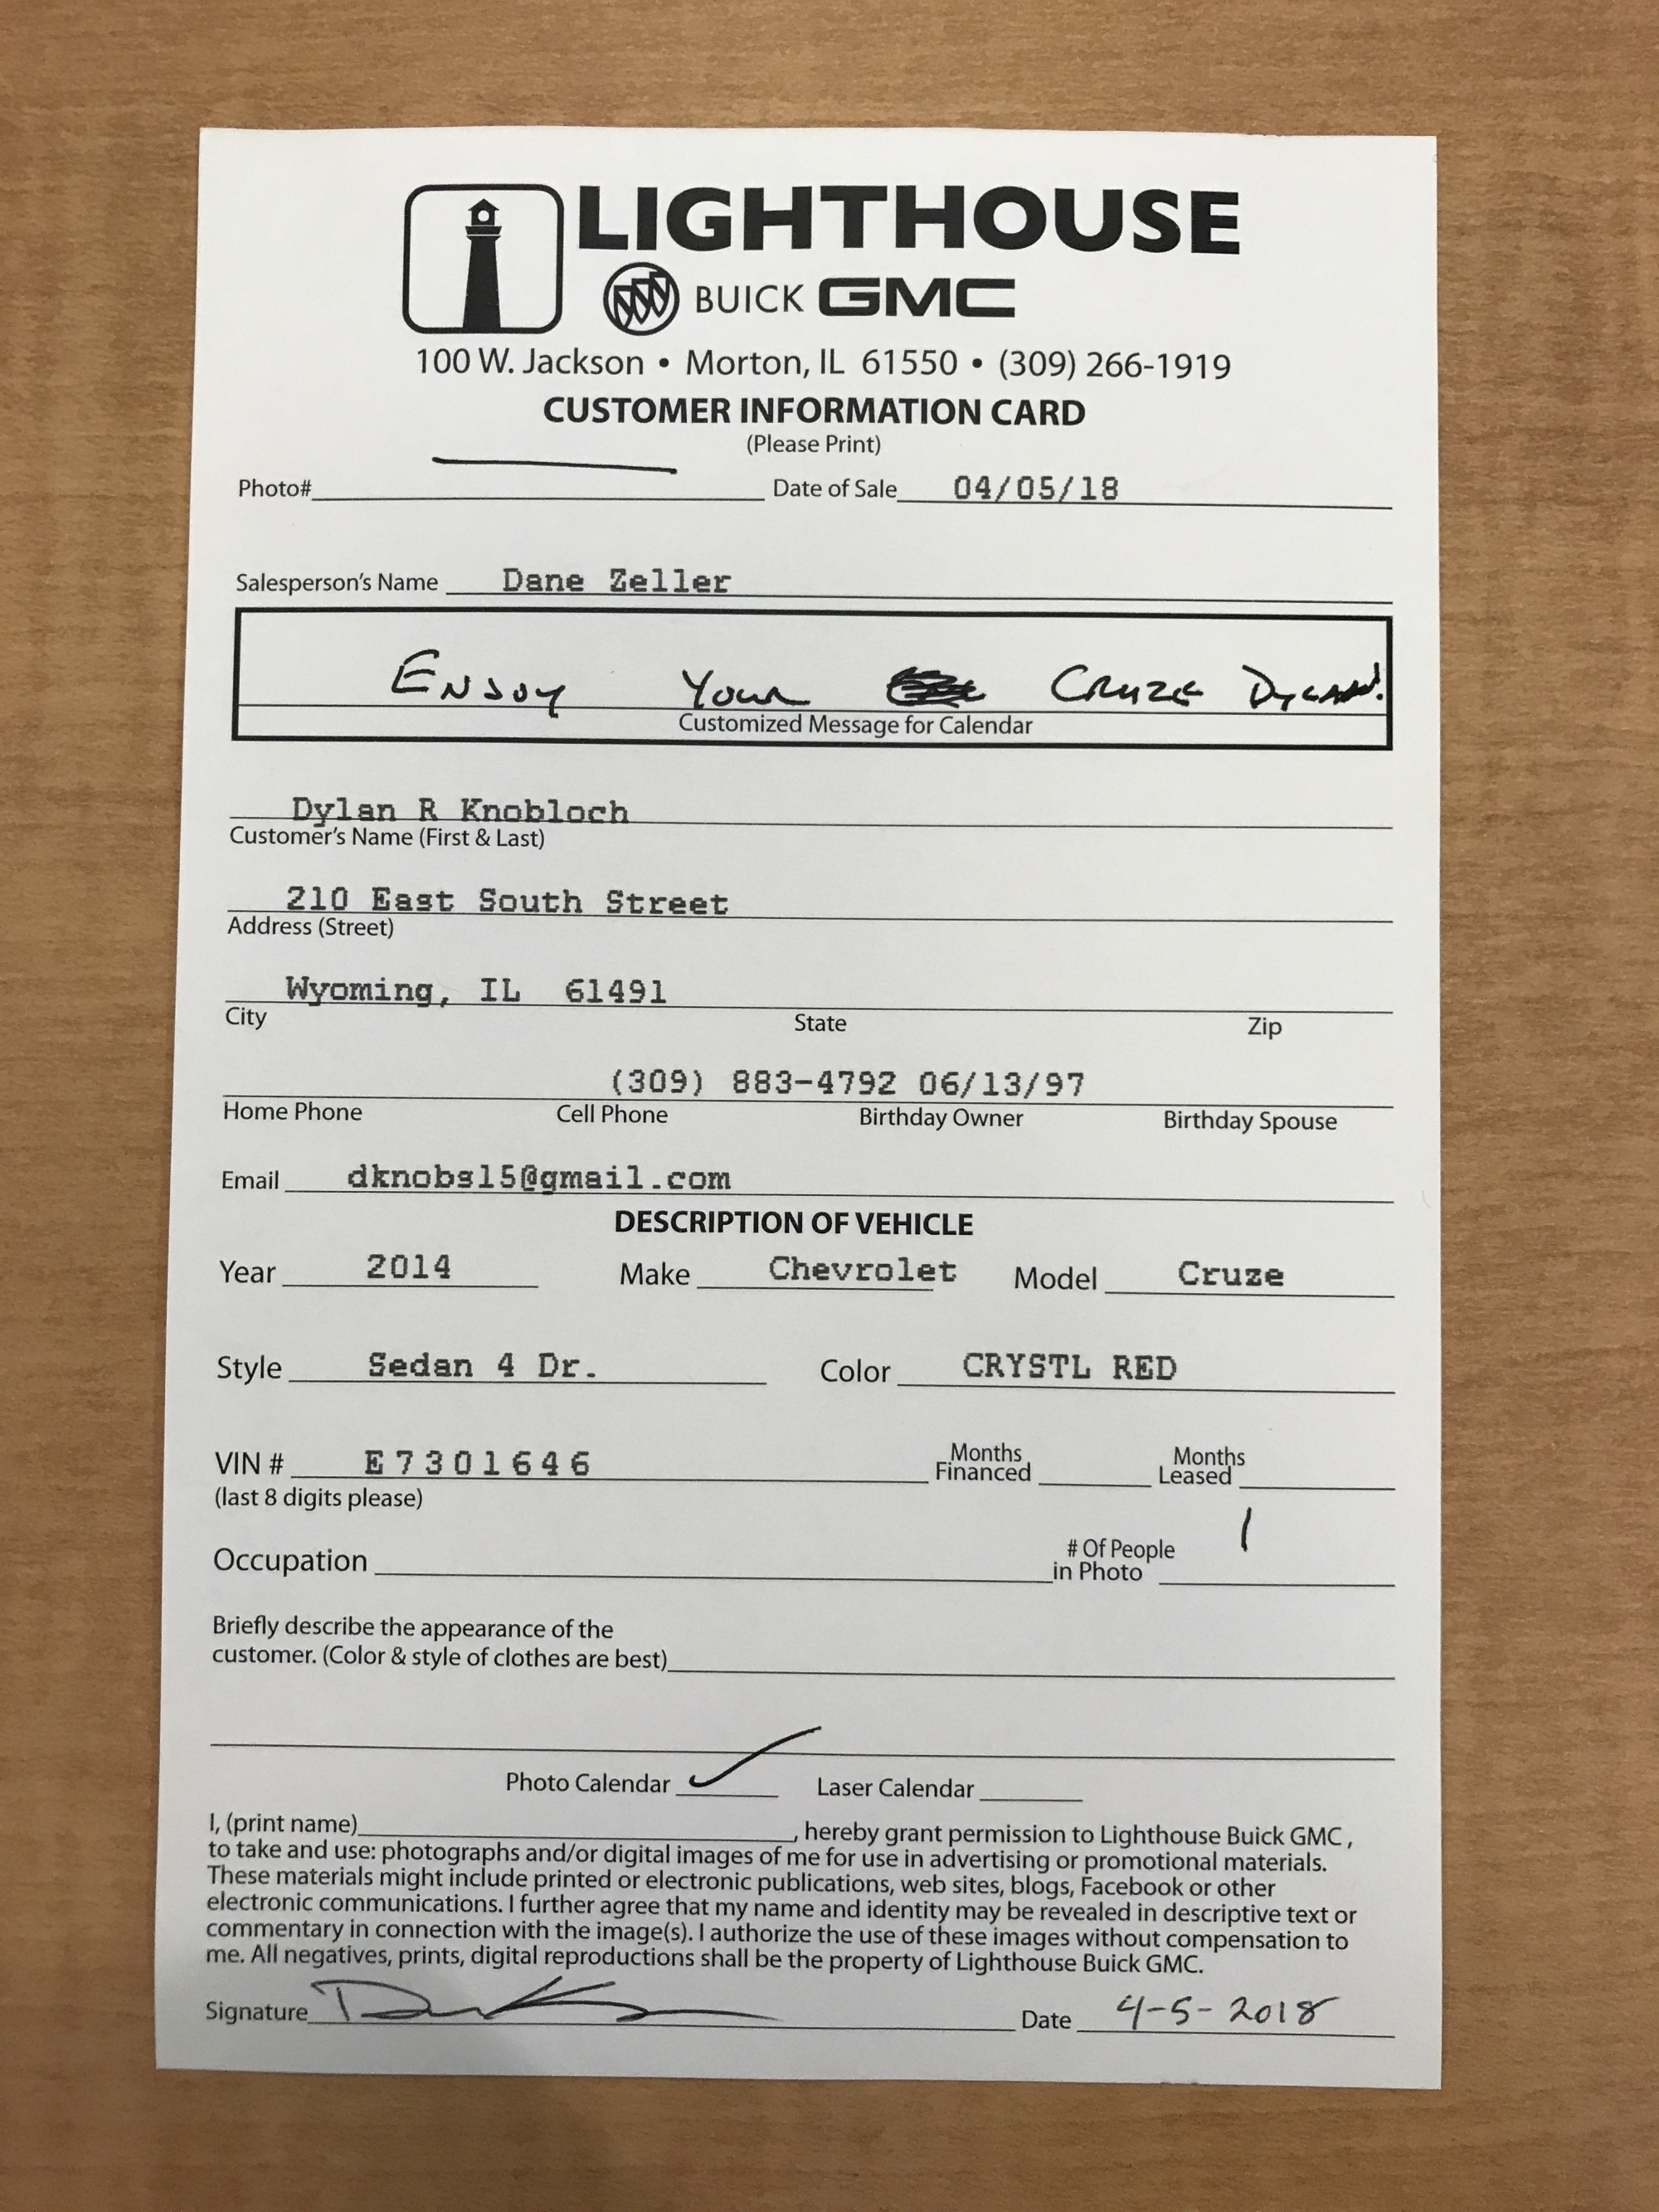 LIGHTHOUSE
BUICK GMC
100 W. Jackson • Morton, IL 61550 • (309) 266-1919
CUSTOMER INFORMATION CARD
(Please Print)
Photo# Date of Sale 04/05/18
Salesperson's Name Dane Zeller
Enjoy Your Cruze Dylan!
Customized Message for Calendar
Dylan R Knobloch
Customer's Name (First & Last)
210 East South Street
Address (Street)
Wyoming, IL 61491
City State Zip
(309) 883-4792 06/13/97
Home Phone Cell Phone Birthday Owner Birthday Spouse
Email dknobs15@gmail.com
DESCRIPTION OF VEHICLE
Year 2014 Make Chevrolet Model Cruze
Style Sedan 4 Dr. Color CRYSTL RED
VIN # E7301646 Months Financed Months Leased
(last 8 digits please)
Occupation # Of People in Photo 1
Briefly describe the appearance of the
customer. (Color & style of clothes are best)
Photo Calendar ✓ Laser Calendar
I, (print name) , hereby grant permission to Lighthouse Buick GMC,
to take and use: photographs and/or digital images of me for use in advertising or promotional materials.
These materials might include printed or electronic publications, web sites, blogs, Facebook or other
electronic communications. I further agree that my name and identity may be revealed in descriptive text or
commentary in connection with the image(s). I authorize the use of these images without compensation to
me. All negatives, prints, digital reproductions shall be the property of Lighthouse Buick GMC.
Signature Date 4-5-2018